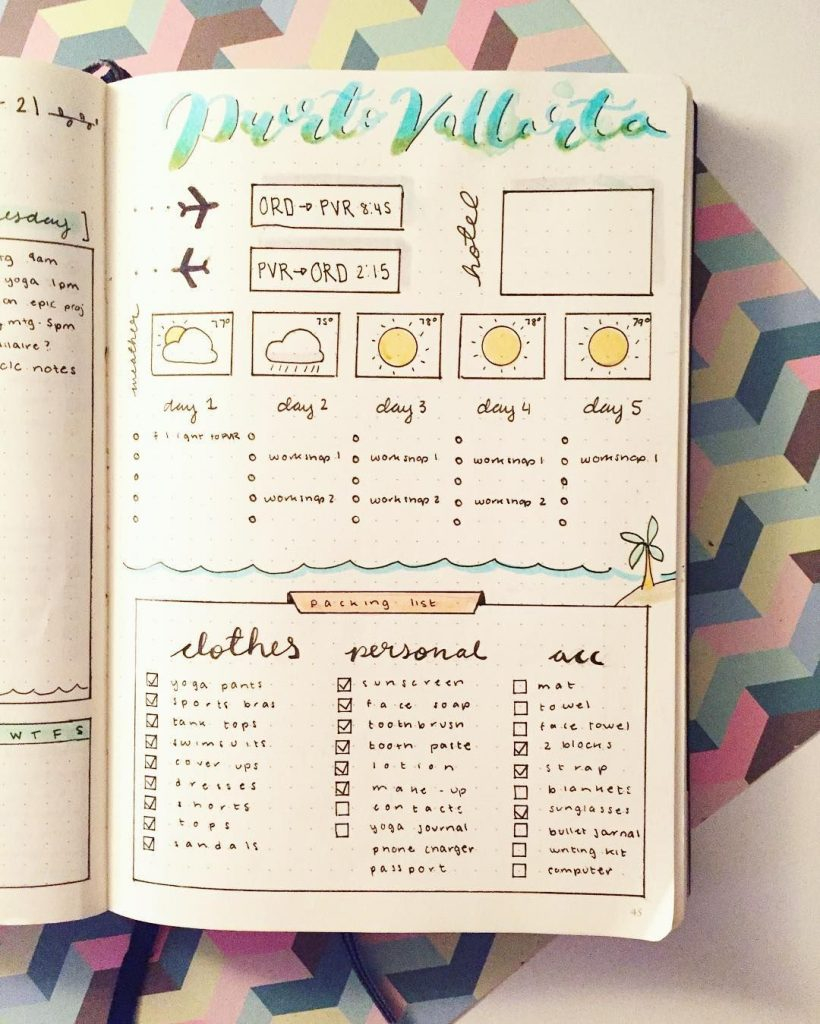 21
Puerto Vallarta
ORD → PVR 8:45
hotel
PVR → ORD 2:15
weather
77° 75° 78° 78° 79°
day 1 day 2 day 3 day 4 day 5
flight to PVR
workshop 1 workshop 1 workshop 1 workshop 1
workshop 2 workshop 2 workshop 2
esday ]
9am
yoga 1pm
on epic proj
mtg - 5pm
llaire?
notes
W T F S
packing list
clothes
yoga pants
sports bras
tank tops
swimsuits
cover ups
dresses
shorts
tops
sandals
personal
sunscreen
face soap
toothbrush
tooth paste
lotion
make-up
contacts
yoga journal
phone charger
passport
acc
mat
towel
face towel
2 blocks
strap
blankets
sunglasses
bullet jarnal
writing kit
computer
45